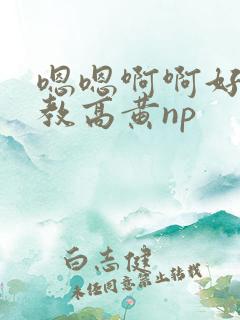 嗯嗯啊啊好
教高黄np
白志健
未经同意禁止转载